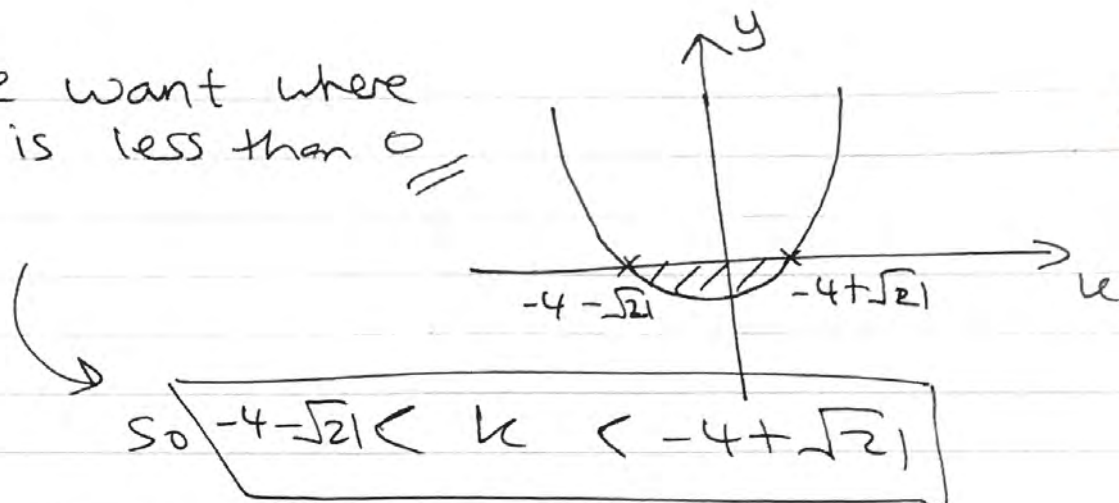 e want where
is less than 0
y
-4-√21
-4+√21
k
so -4-√21 < k < -4+√21